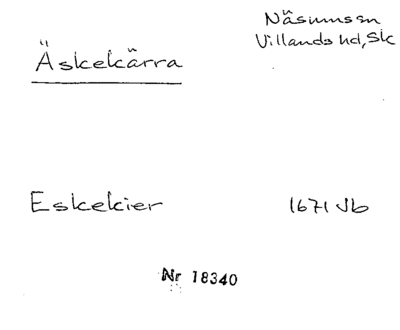 Näsums sn
Villands hd, Sk
Äskekärra
Eskekier 1671 Jb
Nr 18340